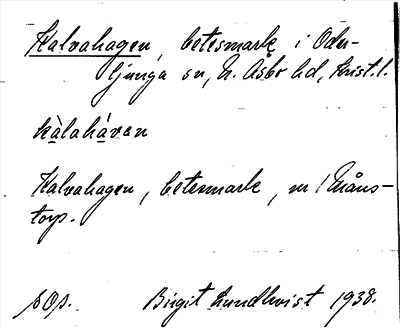 Kalvahagen, betesmark i Oder-
ljunga sn, N. Åsbo hd, Krist. l.
kàlaháven
Kalvahagen, betesmark, nr 1 Måns-
torp.
sOp. Birgit Lundkvist 1938.